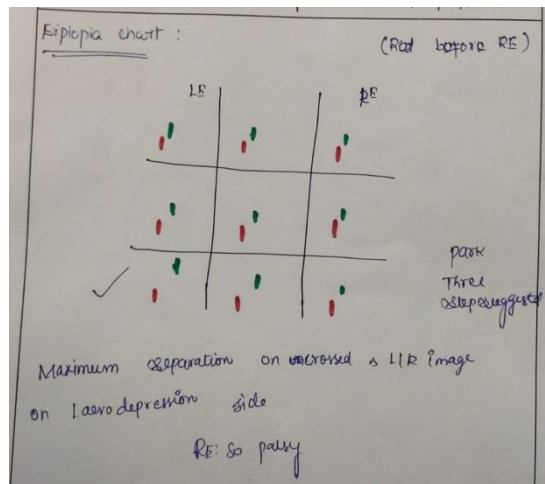 Diplopia chart :
(Red before RE)
LE RE
Park
Three
step suggested
Maximum separation on uncrossed & L/R image
on Laevodepression side
RE: SO palsy